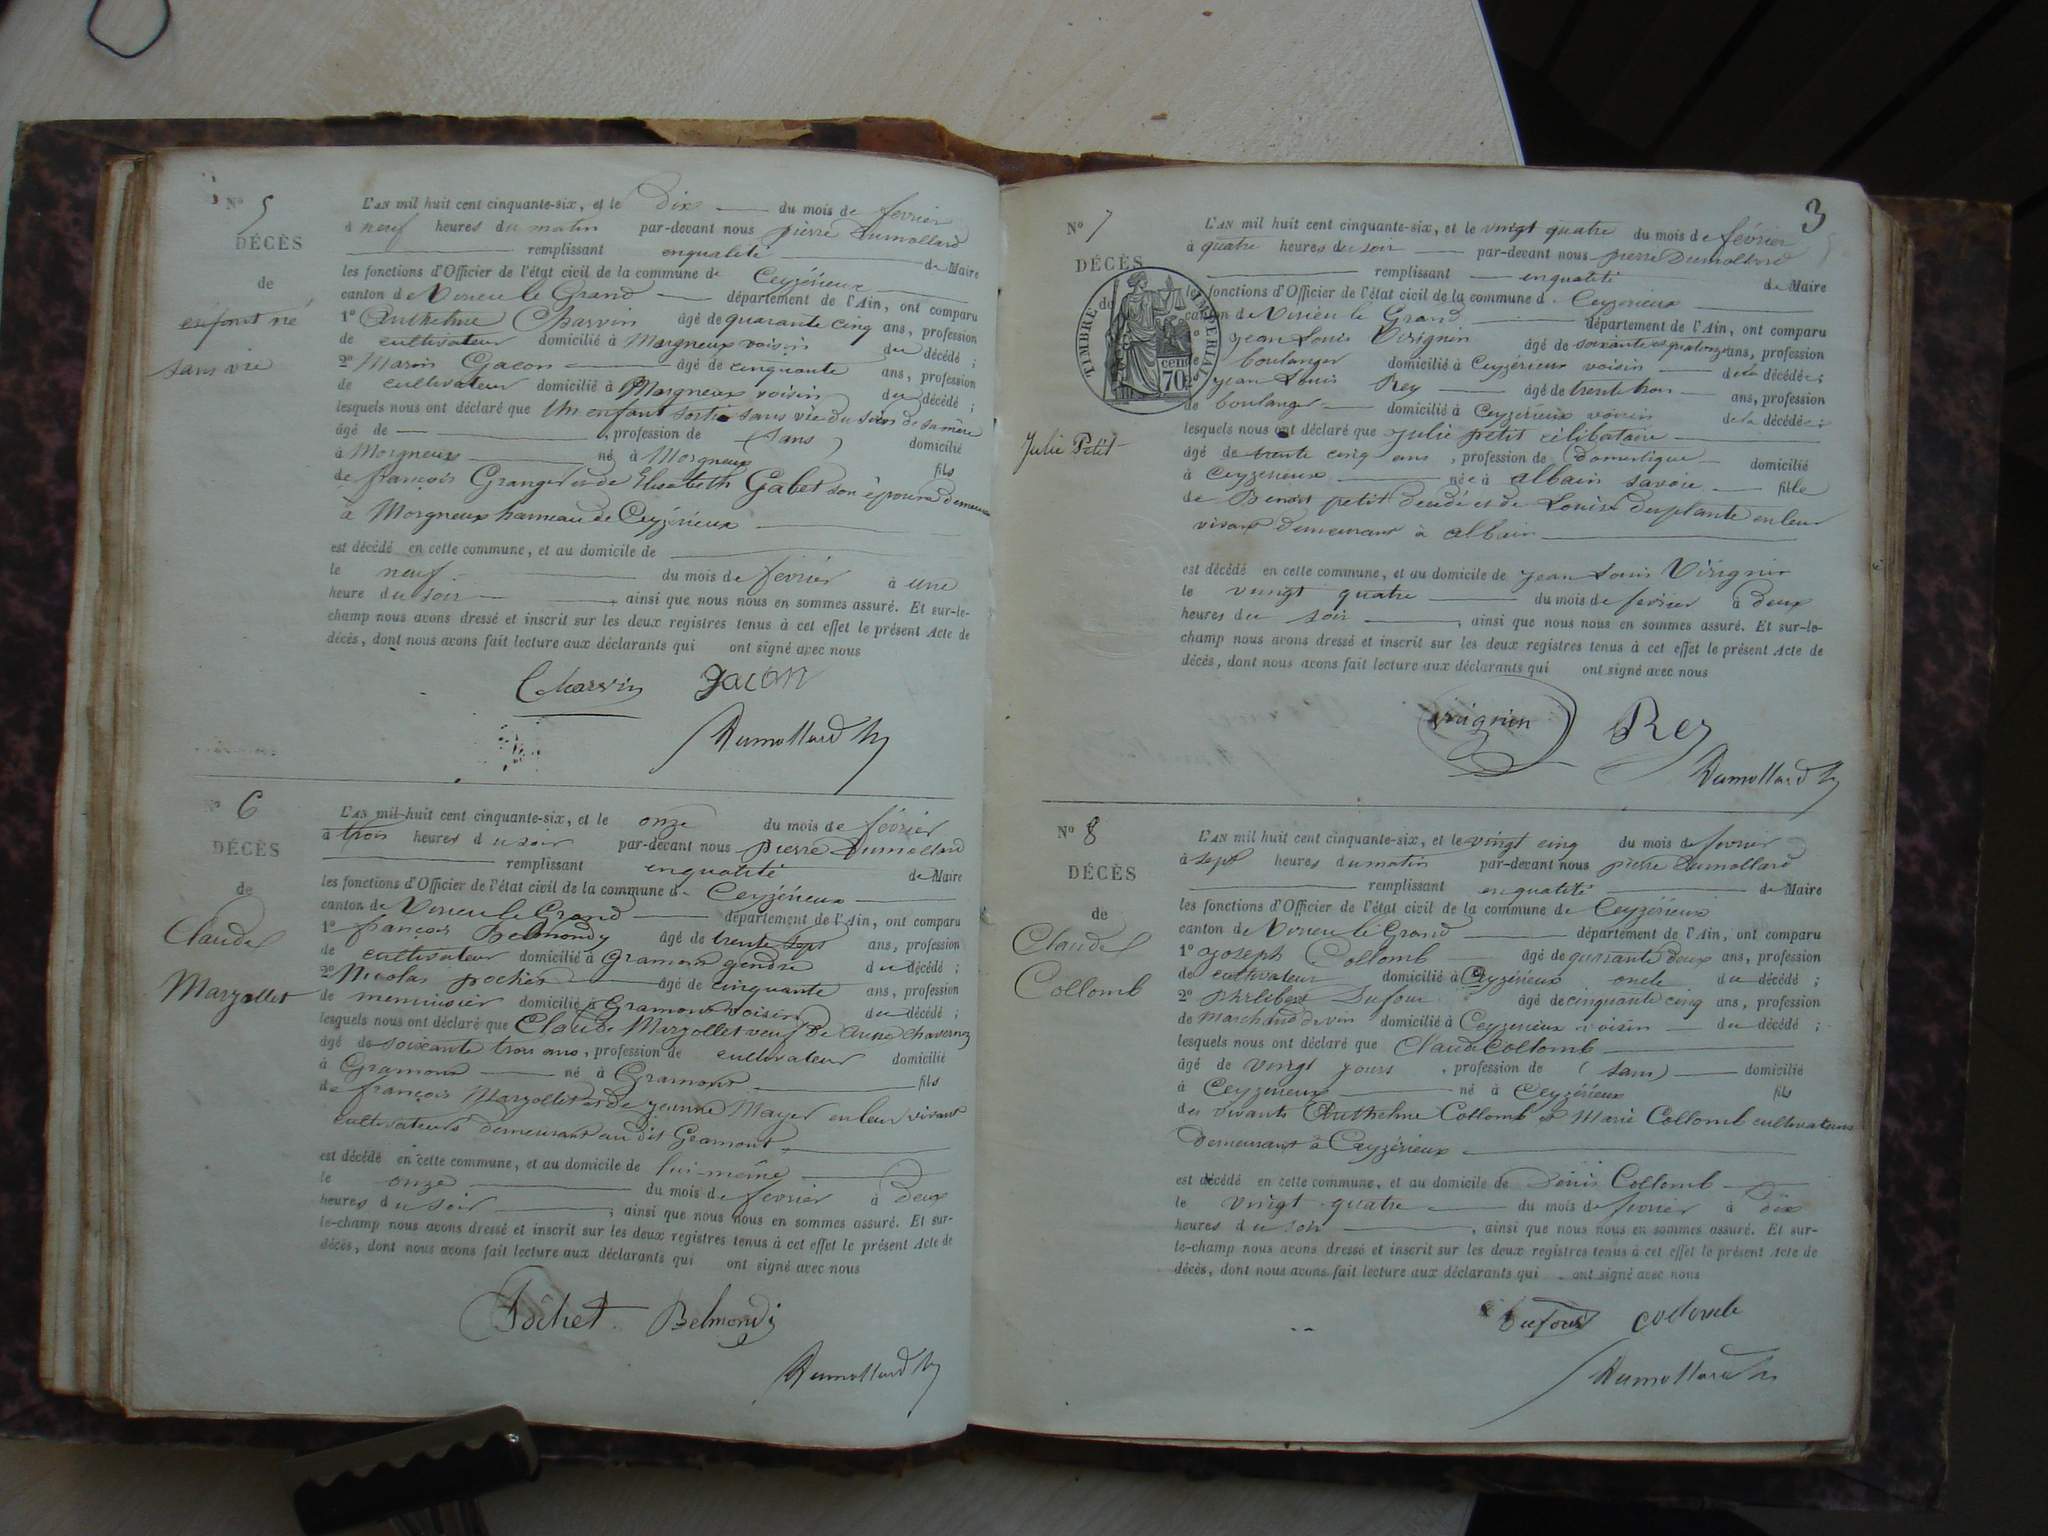 N° 5
DÉCÈS
de
enfant né
sans vie
L'AN mil huit cent cinquante-six, et le Dix du mois de février
à neuf heures du matin par-devant nous pierre Dumollard
remplissant enqualité de Maire
les fonctions d'Officier de l'état civil de la commune de Ceyzérieux
canton de Virieu le Grand département de l'Ain, ont comparu
1° Anthelme Charvin âgé de quarante cinq ans, profession
de cultivateur domicilié à Morgneux voisin du décédé ;
2° Marin Gacon âgé de cinquante ans, profession
de cultivateur domicilié à Morgneux voisin du décédé ;
lesquels nous ont déclaré que Un enfant sorti sans vie du sein de sa mère
âgé de , profession de (sans) domicilié
à Morgneux né à Morgneux fils
de françois Granger et de Elisabeth Gabet son épouse demeurant
à Morgneux hameau de Ceyzérieux
est décédé en cette commune, et au domicile de
le neuf du mois de février à une
heure du soir , ainsi que nous nous en sommes assuré. Et sur-le-
champ nous avons dressé et inscrit sur les deux registres tenus à cet effet le présent Acte de
décès, dont nous avons fait lecture aux déclarants qui ont signé avec nous
Charvin Gacon
Dumollard
N° 6
DÉCÈS
de
Claude
Marzollet
L'AN mil huit cent cinquante-six, et le onze du mois de février
à trois heures du soir par-devant nous pierre Dumollard
remplissant enqualité de Maire
les fonctions d'Officier de l'état civil de la commune de Ceyzérieux
canton de Virieu le Grand département de l'Ain, ont comparu
1° françois Belmondy âgé de trente sept ans, profession
de cultivateur domicilié à Gramont gendre du décédé ;
2° Nicolas pochet âgé de cinquante ans, profession
de menuisier domicilié à Gramont voisin du décédé ;
lesquels nous ont déclaré que Claude Marzollet veuf De Anne Charvernez
âgé de soixante trois ans, profession de cultivateur domicilié
à Gramont né à Gramont fils
de françois Marzollet et de jeanne Mayer en leur vivant
cultivateurs demeurant au dit Gramont
est décédé en cette commune, et au domicile de lui-même
le onze du mois de février à deux
heures du soir , ainsi que nous nous en sommes assuré. Et sur-
le-champ nous avons dressé et inscrit sur les deux registres tenus à cet effet le présent Acte de
décès, dont nous avons fait lecture aux déclarants qui ont signé avec nous
Pochet Belmondy
Dumollard
3
N° 7
DÉCÈS
de
TIMBRE IMPERIAL
70 cen
Julie Petit
L'AN mil huit cent cinquante-six, et le vingt quatre du mois de février
à quatre heures du soir par-devant nous pierre Dumollard
remplissant enqualité de Maire
les fonctions d'Officier de l'état civil de la commune d Ceyzerieux
canton de Virieu le Grand département de l'Ain, ont comparu
jean Louis Virignin âgé de soixante et quatorze ans, profession
de boulanger domicilié à Ceyzérieux voisin de la décédée ;
jean Louis Rey âgé de trente trois ans, profession
de boulanger domicilié à Ceyzérieux voisin de la décédée ;
lesquels nous ont déclaré que julie petit célibataire
âgé de trente cinq ans , profession de (domestique domicilié
à Ceyzerieux née à albain savoie fille
de Benoit petit decédé et de Louise Duplante en leur
vivant demeurant à albain
est décédé en cette commune, et au domicile de jean Louis Virignin
le vingt quatre du mois de février à deux
heures du soir , ainsi que nous nous en sommes assuré. Et sur-le-
champ nous avons dressé et inscrit sur les deux registres tenus à cet effet le présent Acte de
décès, dont nous avons fait lecture aux déclarants qui ont signé avec nous
virignin Rey
Dumollard
N° 8
DÉCÈS
de
Claude
Collomb
L'AN mil huit cent cinquante-six, et le vingt cinq du mois de février
à sept heures du matin par-devant nous pierre Dumollard
remplissant enqualité de Maire
les fonctions d'Officier de l'état civil de la commune de Ceyzérieux
canton de Virieu le Grand département de l'Ain, ont comparu
1° joseph Collomb âgé de quarante deux ans, profession
de cultivateur domicilié à Ceyzérieux oncle du décédé ;
2° philibert Dufour âgé de cinquante cinq ans, profession
de Marchand de vin domicilié à Ceyzerieux voisin du décédé ;
lesquels nous ont déclaré que Claude Collomb
âgé de vingt jours , profession de (sans) domicilié
à Ceyzerieux né à Ceyzérieux fils
des vivants Anthelme Collomb et Marie Collomb cultivateurs
demeurant à Ceyzérieux
est décédé en cette commune, et au domicile de Dénis Collomb
le vingt quatre du mois de février à dix
heures du soir , ainsi que nous nous en sommes assuré. Et sur-
le-champ nous avons dressé et inscrit sur les deux registres tenus à cet effet le présent Acte de
décès, dont nous avons fait lecture aux déclarants qui ont signé avec nous
Dufour collomb
Dumollard